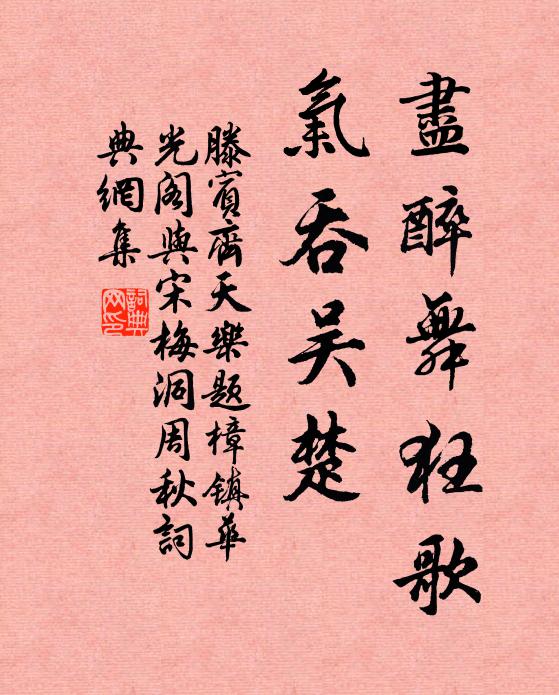 盡醉舞狂歌
氣吞吴楚
滕賓齊天樂題樟鎮華
光閣與宋梅洞周秋詞
典網集
詞典
网印